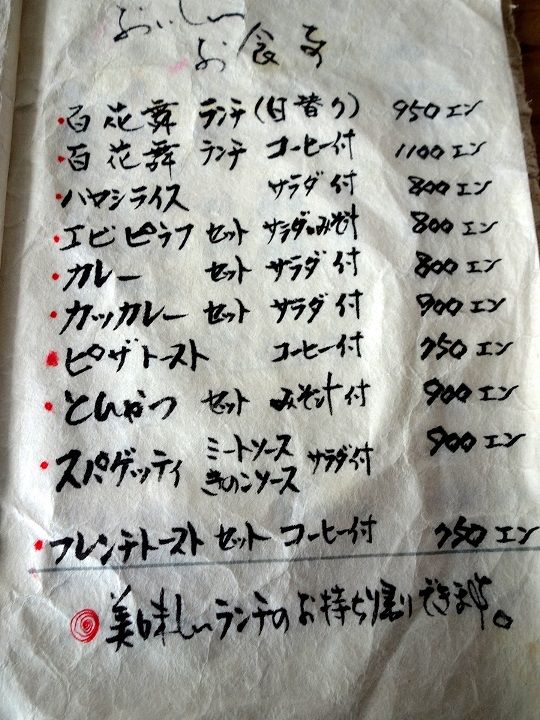 おいしい
お食事
百花舞 ランチ (日替り) 950エン
百花舞 ランチ コーヒー付 1100エン
ハヤシライス サラダ付 800エン
エビピラフ セット サラダ・みそ汁 800エン
カレー セット サラダ付 800エン
カツカレー セット サラダ付 900エン
ピザトースト コーヒー付 750エン
とんかつ セット みそ汁付 900エン
スパゲッティ ミートソース サラダ付 900エン
きのこソース
フレンチトースト セット コーヒー付 750エン
美味しいランチのお持ち帰りできます。